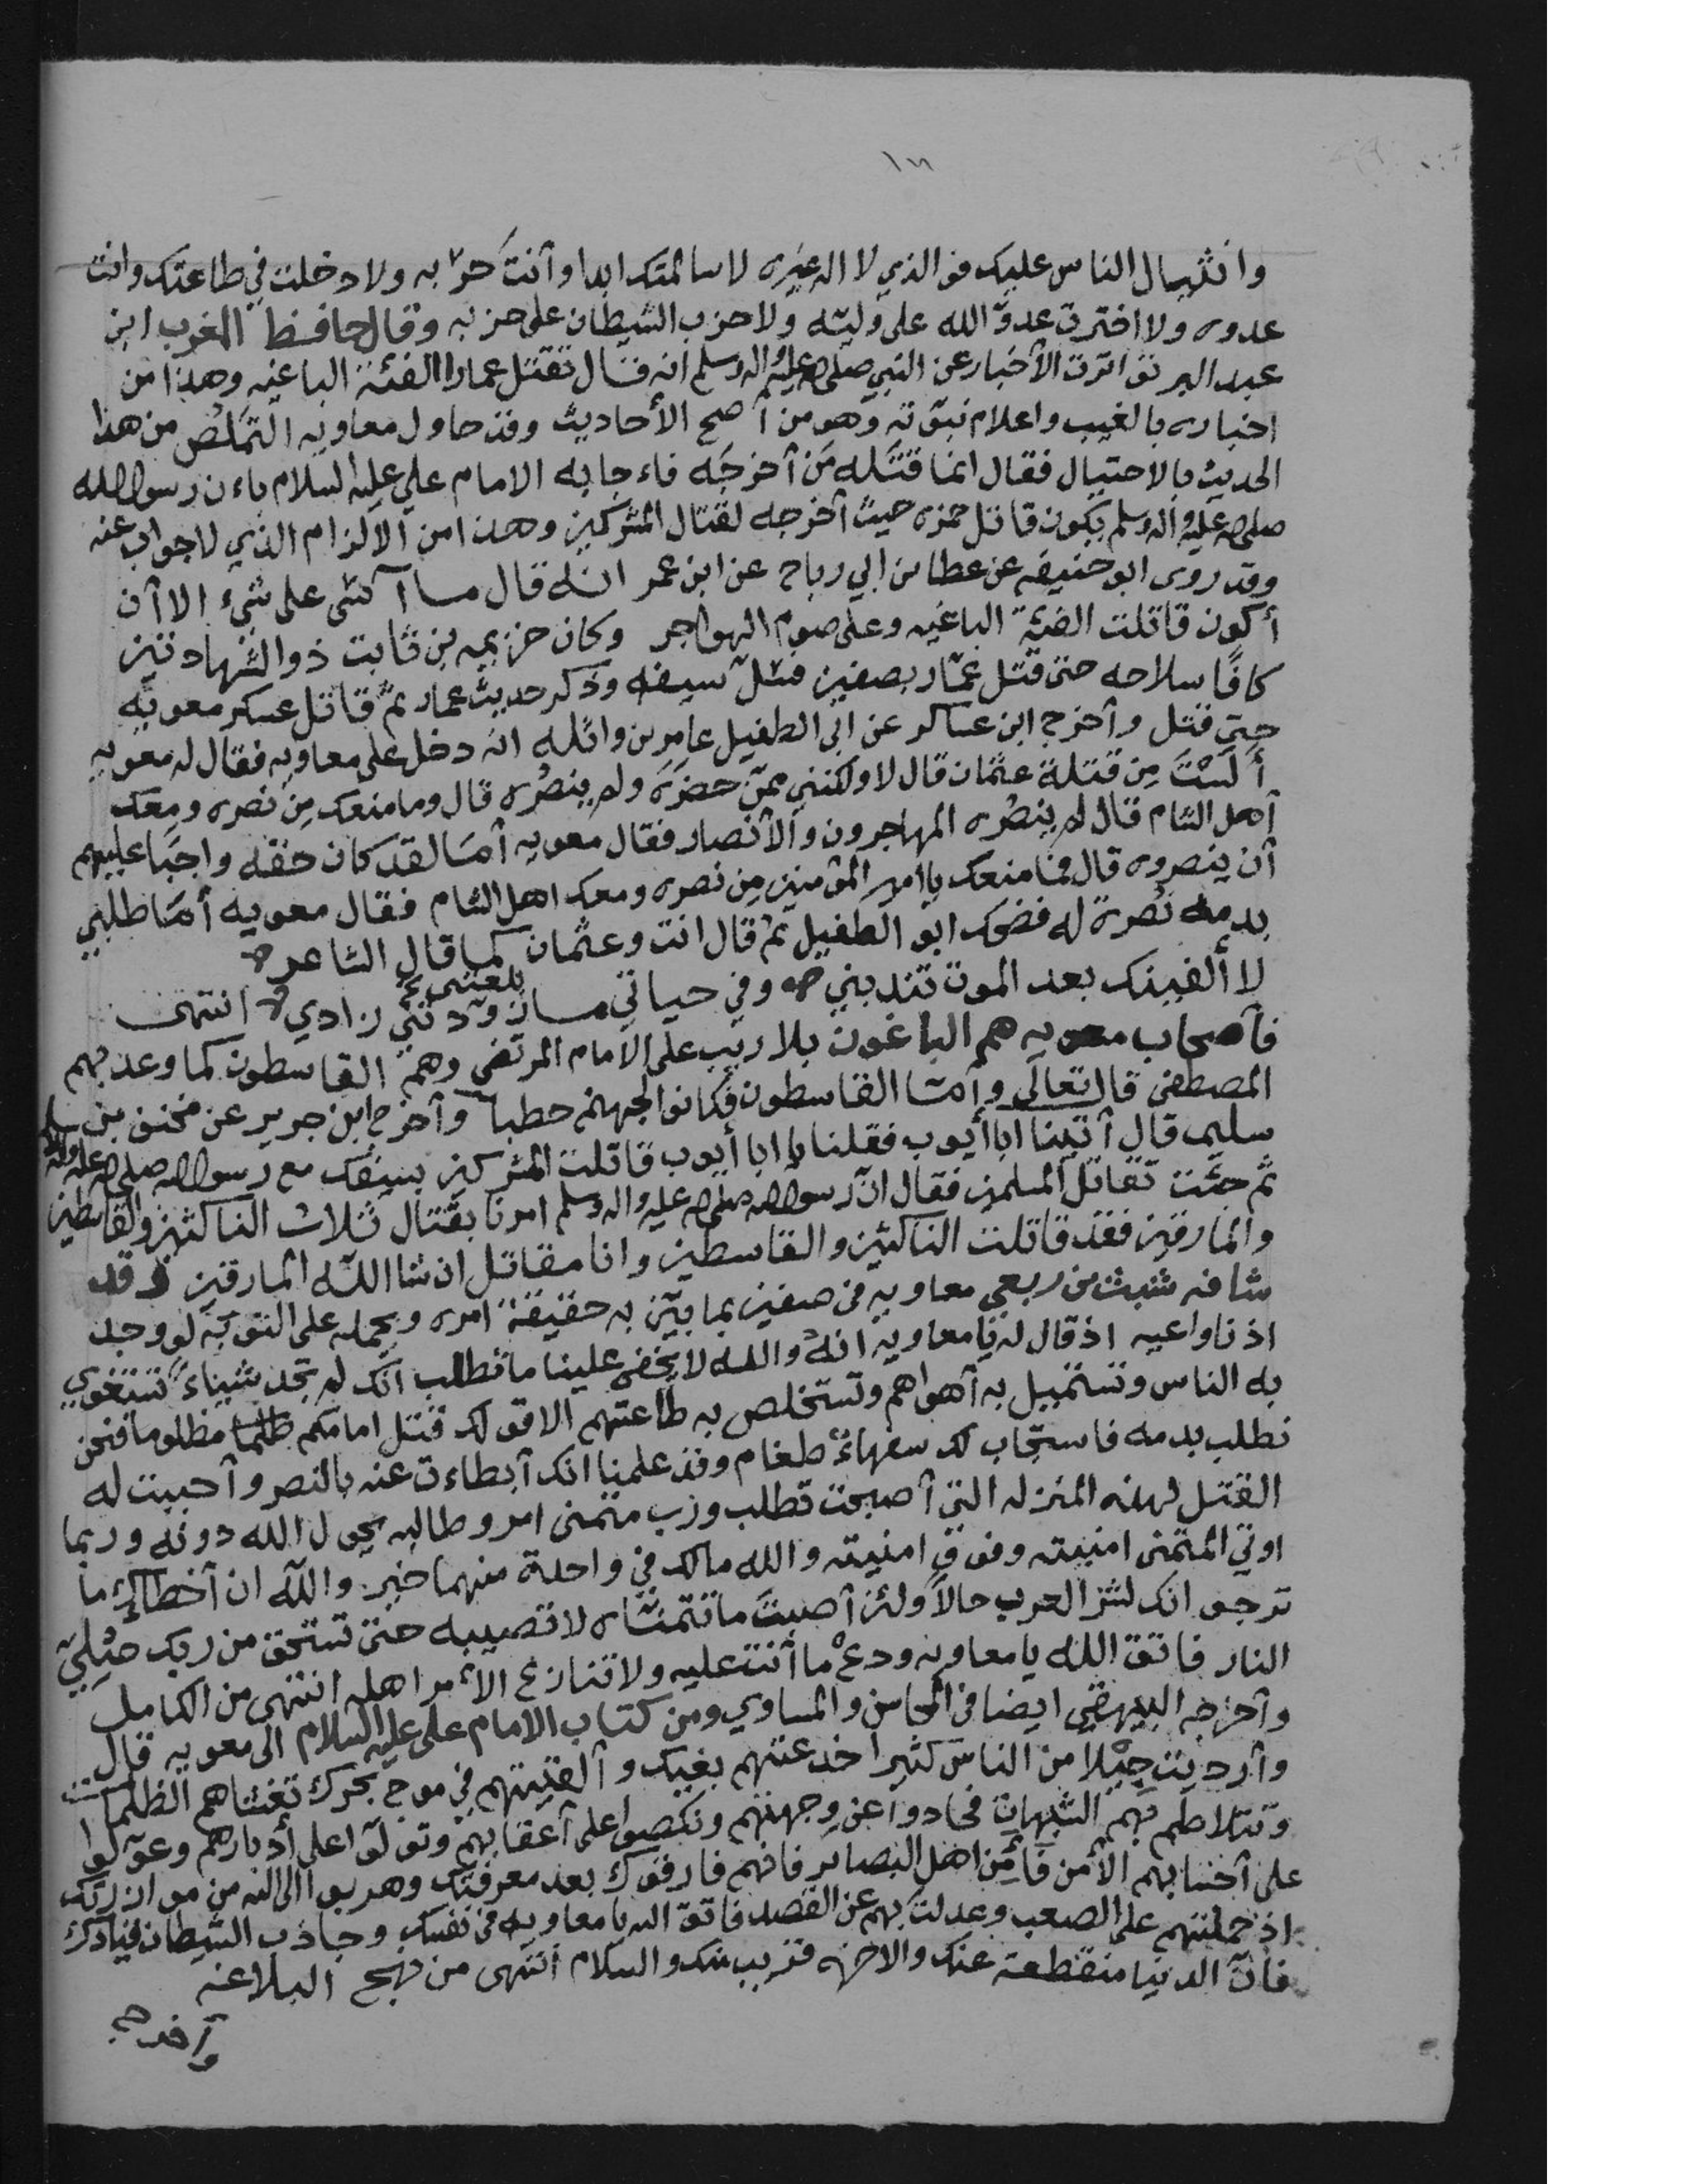 ١٣
وانثيال الناس عليك فوالذي لا اله غيره لا سالمتك ابدا وأنت حربه ولا دخلت في طاعتك وانت
عدوه ولا اخترت عدوّ الله على وليّه ولا حزب الشيطان على حزبه وقال حافظ المغرب ابن
عبد البر تواترت الأخبار عن النبي صلى الله عليه واله وسلم انه قال تقتل عمارا الفئة الباغيه وهذا من
اخباره بالغيب واعلام نبوّته وهو من أصح الأحاديث وقد حاول معاويه التملّص من هذا
الحديث بالاحتيال فقال انما قتله من أخرجه فاءجابه الامام علي عليه السلام باءن رسول الله
صلى الله عليه واله وسلم يكون قاتل حمزه حيث أخرجه لقتال المشركين وهذا من الالزام الذي لا جواب عنه
وقد روى ابو حنيفه عن عطا بن ابي رباح عن ابن عمر انه قال ما آسى على شيء الا أن
أكون قاتلت الفئة الباغيه وعلى صوم الهواجر وكان خزيمه بن ثابت ذو الشهادتين
كافًا سلاحه حتى قتل عمّار بصفين فسلّ سيفه وذكر حديث عمار ثمّ قاتل عسكر معويه
حتى قتل وأخرج ابن عساكر عن ابي الطفيل عامر بن واثله انه دخل على معاويه فقال له معويه
ألَسْتَ مِن قتلة عثمان قال لا ولكنني ممّن حضرَه ولم ينصُره قال وما منعك مِن نصره ومعك
أهل الشام قال لم ينصُره المهاجرون والأنصار فقال معويه أمَا لقد كان حقه واجبا عليهم
أن ينصروه قال فما منعك يا امير المؤمنين مِن نصره ومعك اهل الشام فقال معويه أمَا طلبي
بدمه نُصرة له فضحك ابو الطفيل ثمّ قال انت وعثمان كما قال الشاعر
لا ألفينك بعد الموت تندبني وفي حياتي ما زوّدتني زادي انتهى
فأصحاب معويه هم الباغون بلا ريب على الامام المرتضى وهم القاسطون كما وعد بهم
المصطفى قال تعالى وأمّا القاسطون فكانوا لجهنم حطبا وأخرج ابن جرير عن مخنف بن
سليم قال أتينا ابا أيوب فقلنا يا ابا أيوب قاتلت المشركين بسيفك مع رسول الله صلى الله عليه واله
ثمّ جئت تقاتل المسلمين فقال انّ رسول الله صلى الله عليه واله وسلم امرنا بقتال ثلاث الناكثين والقاسطين
والمارقين فقد قاتلت الناكثين والقاسطين وانا مقاتل ان شا الله المارقين وقد
شافه شبث بن ربعي معاويه في صفين بما بيّن به حقيقة امره ويحمله على التوبه لو وجد
اذنا واعيه اذ قال له يا معاويه انه والله لا يخفى علينا ما تطلب انك لم تجد شيئاءً تستغوي
به الناس وتستميل به أهواهم وتستخلص به طاعتهم الا قولك قتل امامكم مظلوما فنحن
نطلب بدمه فاستجاب لك سفهاءٌ طغام وقد علمنا انك أبطاءت عنه بالنصر وأحببت له
القتل لهذه المنزله التي أصبحت تطلب ورب متمنى امر وطالبه يحول الله دونه وربما
اوتي المتمنى امنيته وفوق امنيته والله مالك في واحدة منهما خير والله ان أخطاك ما
ترجو انك لشرّ العرب حالاً ولئن أصبتَ ما تتمنّاه لا تصيبه حتى تستحق من ربك صُلِيّ
النار فاتق الله يا معاويه ودعْ ما أنت عليه ولا تنازع الأمر اهله انتهى من الكامل
وأخرجه البيهقي ايضا في المحاسن والمساوي ومن كتاب الامام علي عليه السلام الى معويه قال
وأرديت جِيْلا من الناس كثيرا خدعتهم بغيك وألقيتهم في موج بحرك تغشاهم الظلمات
وتتلاطم بهم الشبهات فجادوا عن وجهتهم ونكصوا على أعقابهم وتولّوا على أدبارهم وعوّلوا
على أحسابهم الا من فآءَ مِن اهل البصائر فانهم فارقوك بعد معرفتك وهربوا الى الله من موازرتك
اذ حملتهم على الصعب وعدلت بهم عن القصد فاتق الله يا معاويه في نفسك وجاذب الشيطان قيادك
فانّ الدنيا منقطعة عنك والاخره قريب منك والسلام انتهى من نهج البلاغه
وأخرج